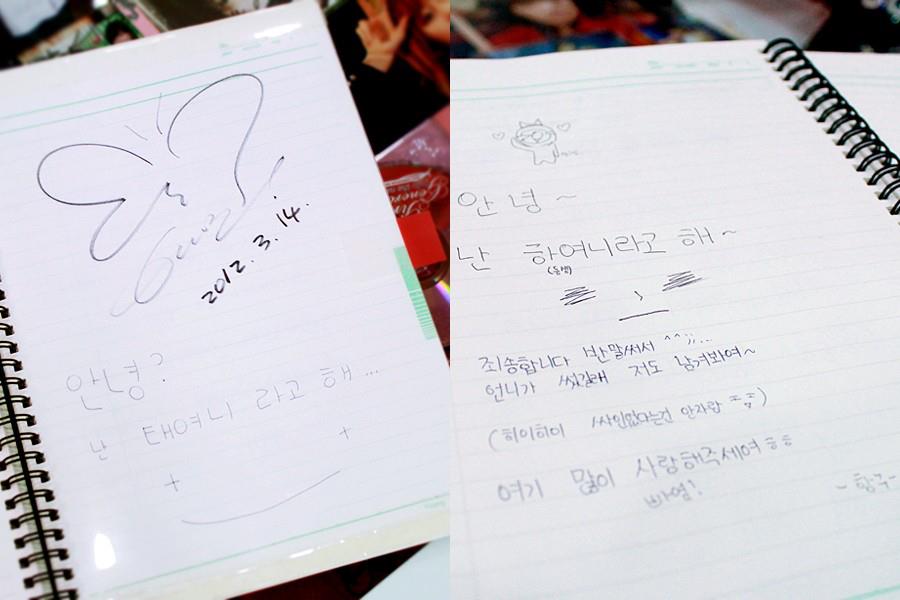 2012. 3. 14.
안녕?
난 태여니 라고 해...
안녕~
난 하여니라고 해~
죄송합니다 반말써서 ^^;;...
언니가 써길래 저도 남겨봐여~
(히이히이 싸인없다는건 안자랑 ㅋㅋ)
여기 많이 사랑해주세여 ㅎㅎ
빠염!